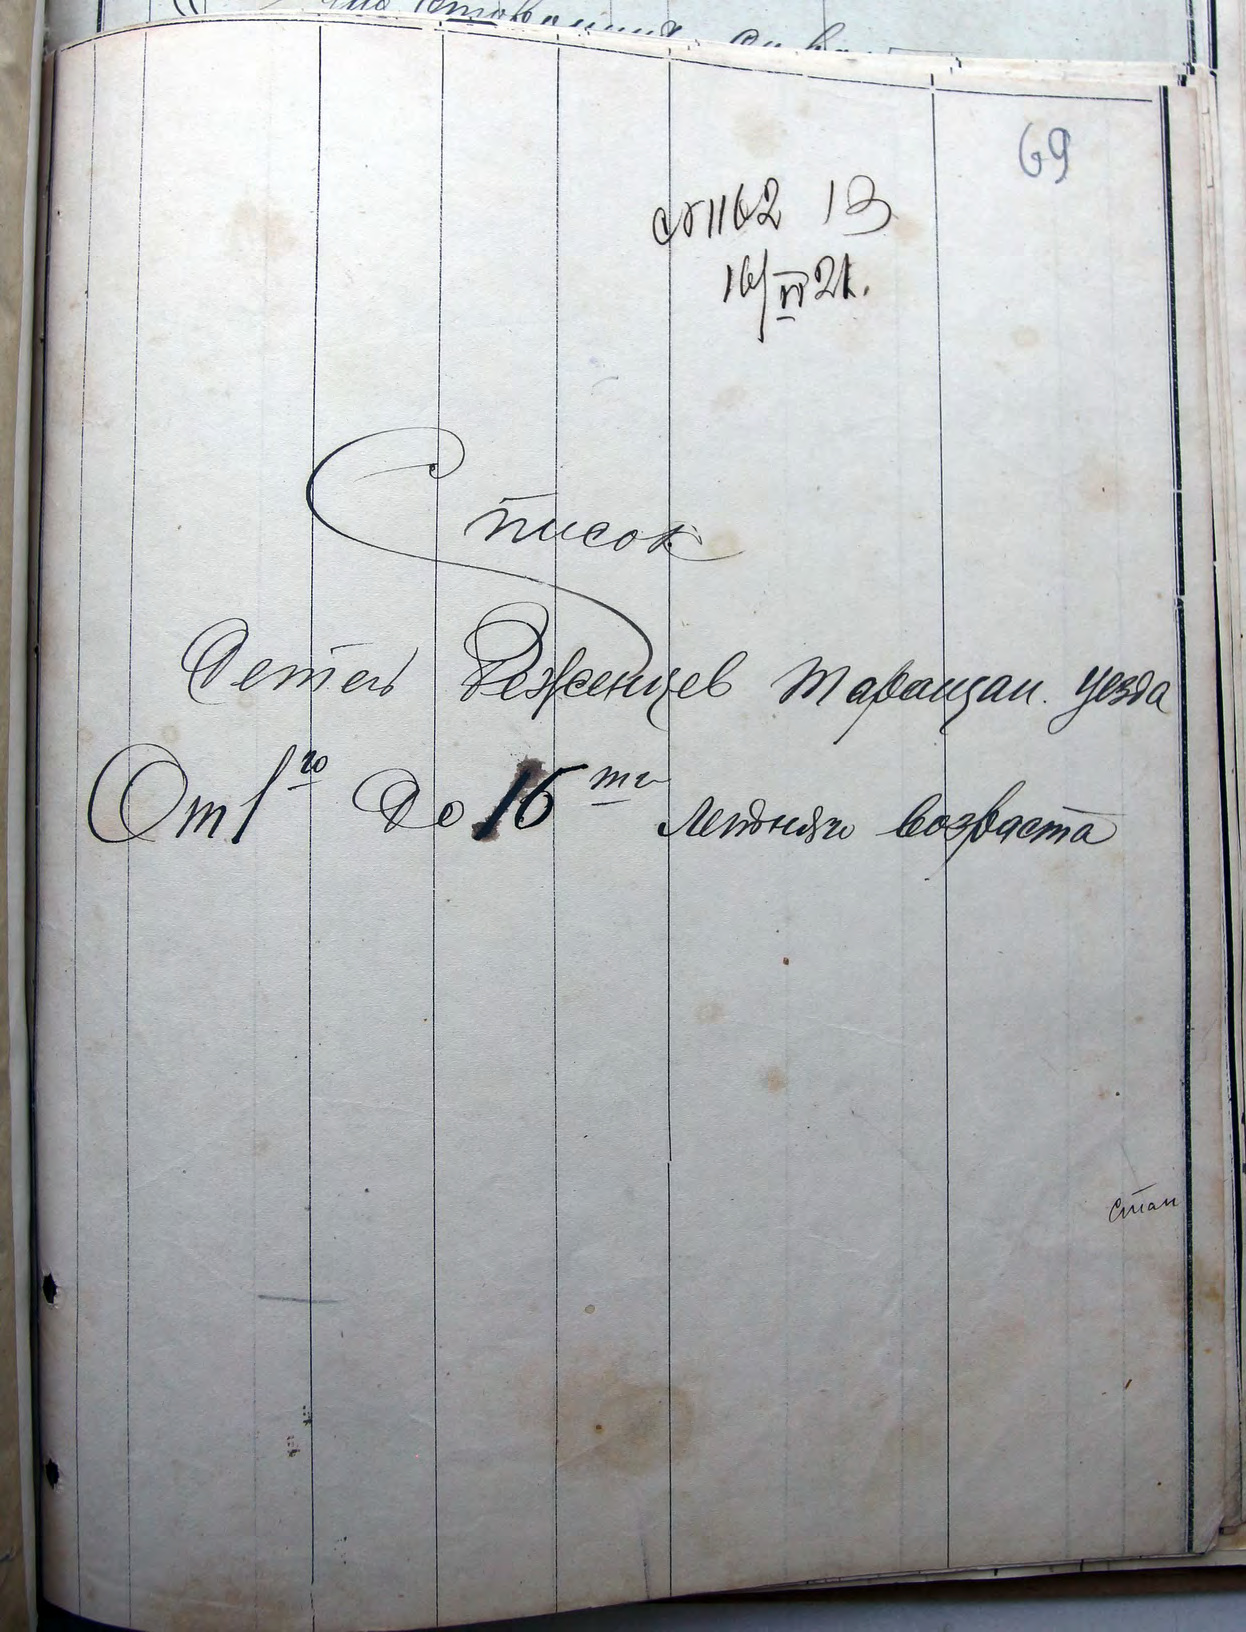 69
№1162 13
16/VI 21.
Список
Детей Беженцев Таращан. уезда
От 1го до 16ти летняго возраста
стан